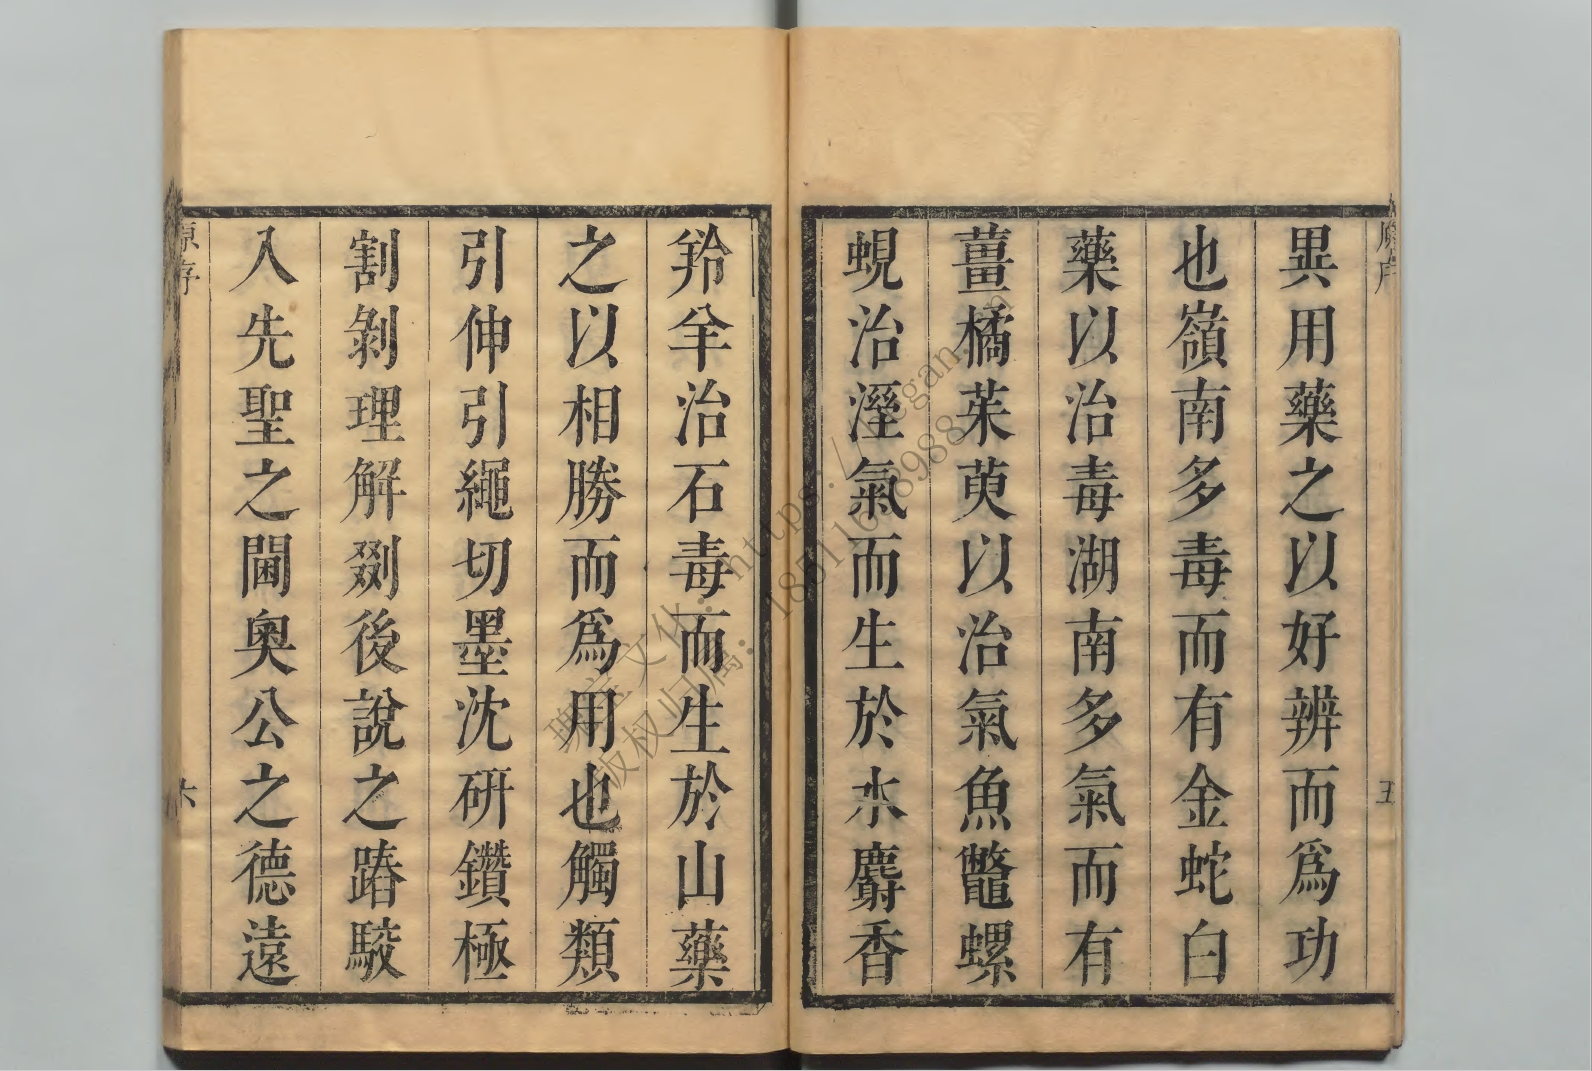 異用藥之以好辨而爲功
也嶺南多毒而有金蛇白
藥以治毒湖南多氣而有
薑橘茱萸以治氣魚鼈螺
蜆治溼氣而生於水麝香
羚羊治石毒而生於山藥
之以相勝而爲用也觸類
引伸引繩切墨沈研鑽極
割剝理解剟後說之踳駮
入先聖之閫奧公之德遠
六